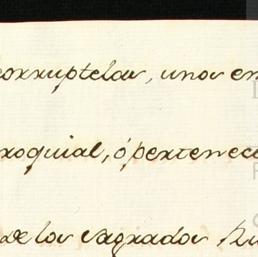 corruptelas, unos en
roquial, ó pertenec
de los Sagrados